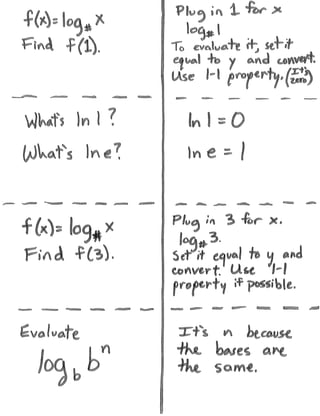 f(x)=log# x
Find f(1).
Plug in 1 for x
log# 1
To evaluate it, set it
equal to y and convert.
Use 1-1 property. (It's zero)
What's ln 1?
What's ln e?
ln 1 = 0
ln e = 1
f(x)= log# x
Find f(3).
Plug in 3 for x.
log# 3.
Set it equal to y and
convert. Use 1-1
property if possible.
Evaluate
log_b b^n
It's n because
the bases are
the same.